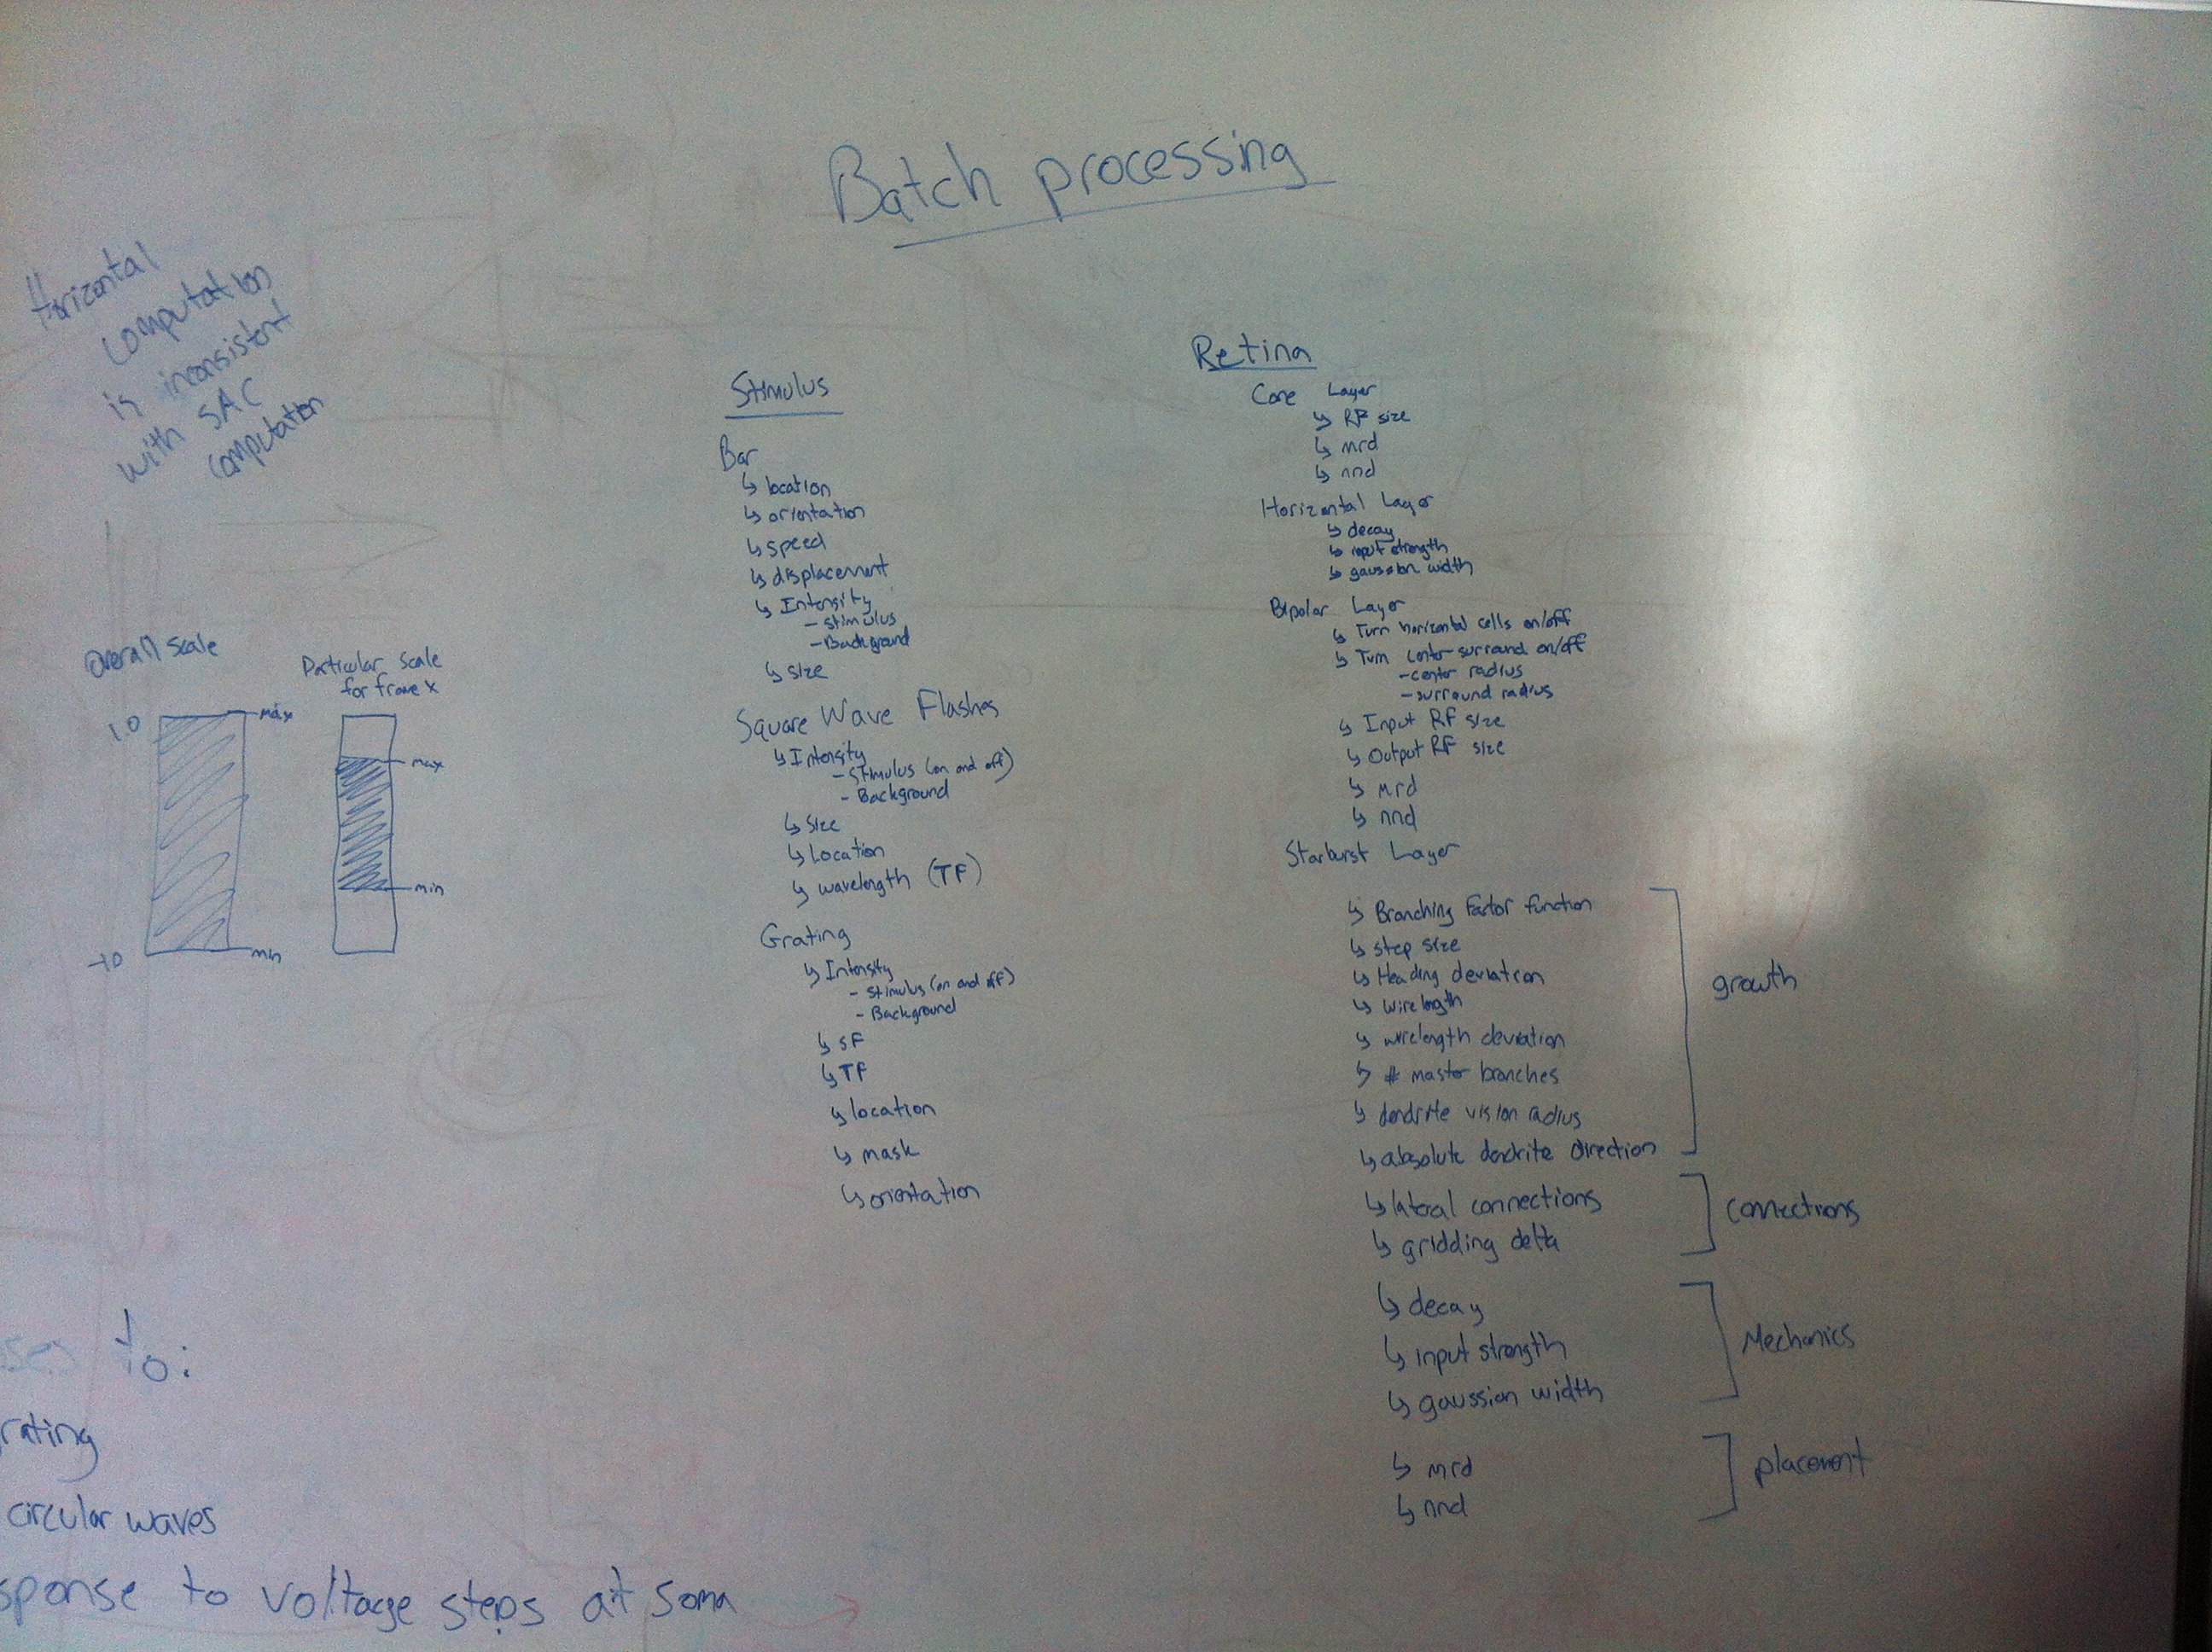 Batch processing
Horizontal
computation
is inconsistent
with SAC
computation
Overall scale
1.0
max
-1.0
min
Particular scale
for frame x
max
min
Stimulus
Bar
↳ location
↳ orientation
↳ speed
↳ displacement
↳ Intensity
- stimulus
- Background
↳ size
Square Wave Flashes
↳ Intensity
- Stimulus (on and off)
- Background
↳ Size
↳ Location
↳ wavelength (TF)
Grating
↳ Intensity
- Stimulus (on and off)
- Background
↳ SF
↳ TF
↳ location
↳ mask
↳ orientation
Retina
Cone Layer
↳ RF size
↳ mrd
↳ nnd
Horizontal Layer
↳ decay
↳ input strength
↳ gaussian width
Bipolar Layer
↳ Turn horizontal cells on/off
↳ Turn center-surround on/off
- center radius
- surround radius
↳ Input RF size
↳ Output RF size
↳ mrd
↳ nnd
Starburst Layer
↳ Branching Factor function
↳ step size
↳ Heading deviation
↳ wirelength
↳ wirelength deviation
↳ # master branches
↳ dendrite vision radius
↳ absolute dendrite direction
growth
↳ lateral connections
↳ gridding delta
connections
↳ decay
↳ input strength
↳ gaussian width
Mechanics
↳ mrd
↳ nnd
placement
ses to:
rating
circular waves
sponse to voltage steps at soma